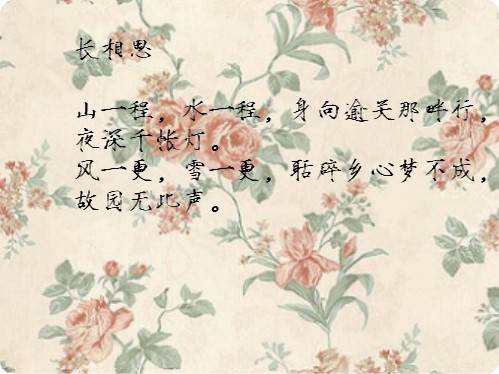 长相思
山一程，水一程，身向逾关那畔行，
夜深千帐灯。
风一更，雪一更，聒碎乡心梦不成，
故园无此声。